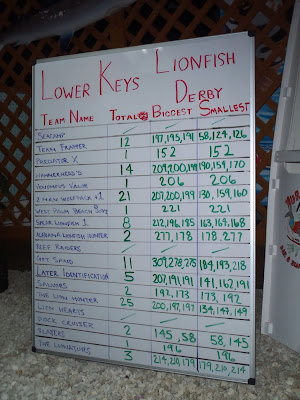 Lower Keys Lionfish
Derby
Team Name Total# Biggest Smallest
Seacamp /
Team Frapper 12 197,193,191 58,124,126
Predator X 1 152 152
Hammerhead's 14 209,200,199 190,159,170
Venomous Valor 1 206 206
2 man Wolfpack +1 21 207,200,199 130,159,160
West Palm Beach 1 221 221
Spear Lionfish 1 8 212,196,185 163,164,168
Alabama Lionfish Hunter 2 277,178 178,277
Reef Raiders /
Got Sand 11 309,278,275 184,193,218
Later Identification 5 207,191,191 141,162,191
Saluors 2 192,173 173,192
The Lion Hunter 25 200,197,197 134,147,149
Lion Hearts /
Dock Cruiser /
Slayers 2 145,58 58,145
The 1 196 196
3 214,210,179 179,210,214